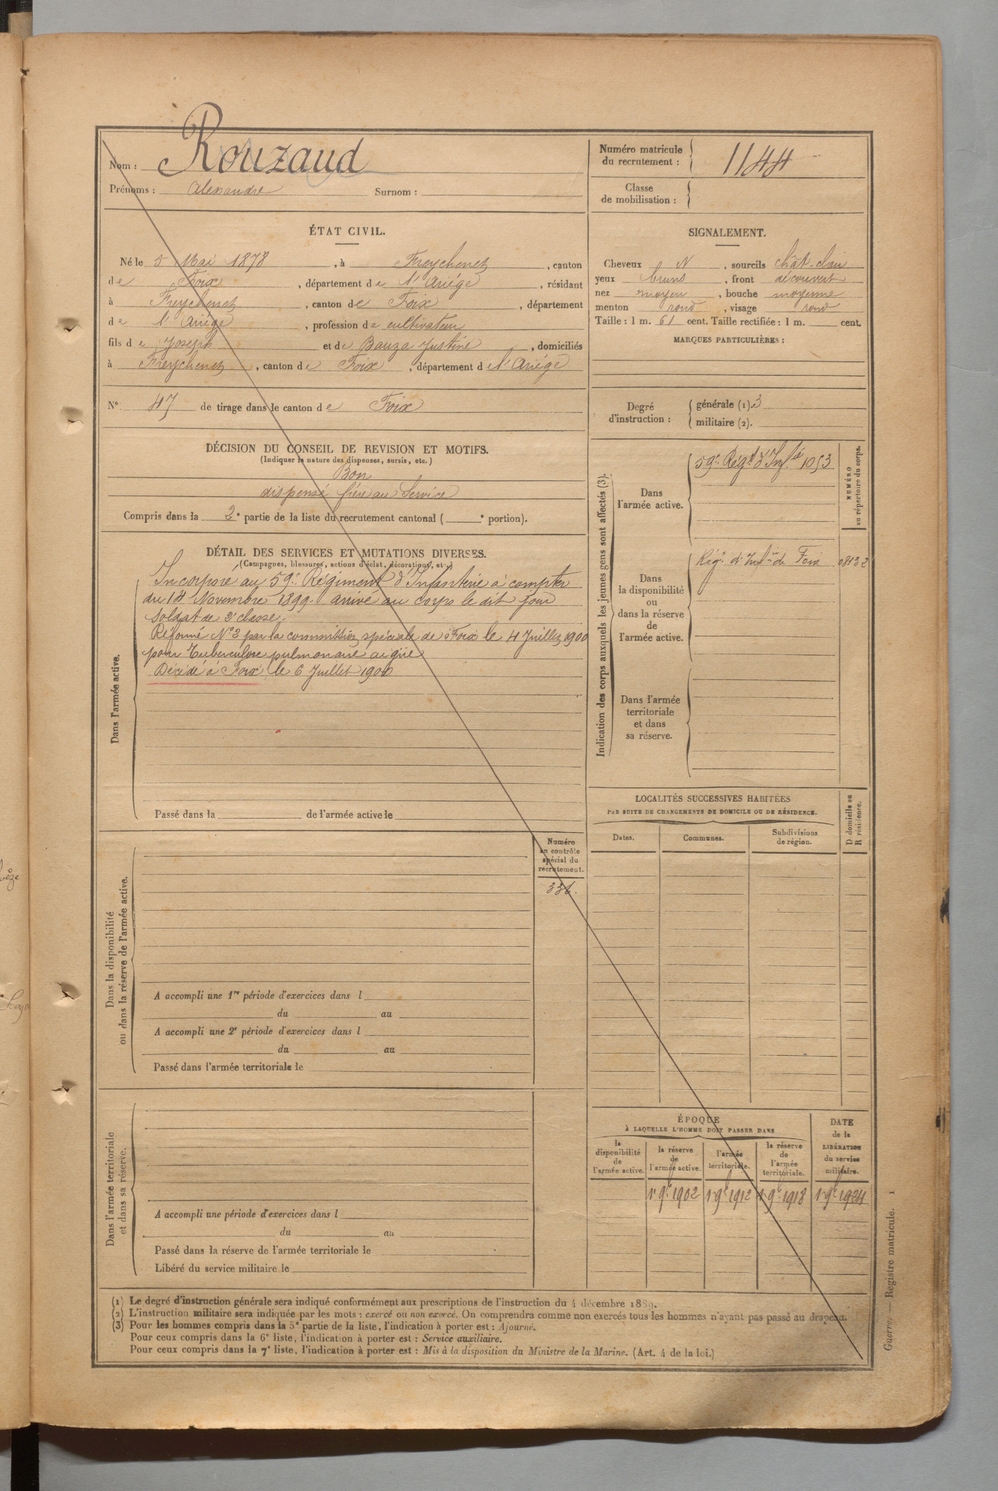 Nom : Rouzaud
Prénoms : Alexandre Surnom :
Numéro matricule du recrutement : 1144
Classe de mobilisation :
ÉTAT CIVIL.
Né le 5 Mai 1878, à Freychenet, canton
de Foix, département de l'Ariège, résidant
à Freychenet, canton de Foix, département
de l'Ariège, profession de cultivateur
fils de Joseph et de Bauza Justine, domiciliés
à Freychenet, canton de Foix, département de l'Ariège
N° 47 de tirage dans le canton de Foix
SIGNALEMENT.
Cheveux N, sourcils chât-clair
yeux bruns, front découvert
nez moyen, bouche moyenne
menton rond, visage rond
Taille : 1 m. 61 cent. Taille rectifiée : 1 m. cent.
MARQUES PARTICULIÈRES :
Degré d'instruction : générale (1). 3
militaire (2).
DÉCISION DU CONSEIL DE REVISION ET MOTIFS.
(Indiquer la nature des dispenses, sursis, etc.)
Bon
dispensé frère au Service
Compris dans la 2e partie de la liste du recrutement cantonal ( e portion).
DÉTAIL DES SERVICES ET MUTATIONS DIVERSES.
(Campagnes, blessures, actions d'éclat, décorations, etc.)
Dans l'armée active.
Incorporé au 59e Régiment d'Infanterie à compter
du 14 Novembre 1899 arrivé au corps le dit jour
Soldat de 2e classe.
Réformé N° 2 par la commission spéciale de Foix le 4 Juillet 1900
pour Tuberculose pulmonaire aigüe
Décédé à Foix le 6 Juillet 1900
Passé dans la de l'armée active le
Indication des corps auxquels les jeunes gens sont affectés (3).
NUMÉRO au répertoire du corps.
Dans l'armée active.
59e Régt d'Infie 1053
Dans la disponibilité ou dans la réserve de l'armée active.
Régt d'Infie de Foix
Dans l'armée territoriale et dans sa réserve.
LOCALITÉS SUCCESSIVES HABITÉES
PAR SUITE DE CHANGEMENTS DE DOMICILE OU DE RÉSIDENCE.
Dates. Communes. Subdivisions de région. D domicile ou R résidence.
Numéro au contrôle spécial du recrutement.
336.
Dans la disponibilité ou dans la réserve de l'armée active.
A accompli une 1re période d'exercices dans l
du au
A accompli une 2e période d'exercices dans l
du au
Passé dans l'armée territoriale le
Dans l'armée territoriale et dans sa réserve.
A accompli une période d'exercices dans l
du au
Passé dans la réserve de l'armée territoriale le
Libéré du service militaire le
ÉPOQUE
À LAQUELLE L'HOMME DOIT PASSER DANS
DATE de la LIBÉRATION du service militaire.
la disponibilité de l'armée active. la réserve de l'armée active. l'armée territoriale. la réserve de l'armée territoriale.
1r 9e 1902 1r 9e 1912 1r 9e 1918 1r 9e 1924
(1) Le degré d'instruction générale sera indiqué conformément aux prescriptions de l'instruction du 4 décembre 1889.
(2) L'instruction militaire sera indiquée par les mots : exercé ou non exercé. On comprendra comme non exercés tous les hommes n'ayant pas passé au drapeau.
(3) Pour les hommes compris dans la 5e partie de la liste, l'indication à porter est : Ajourné.
Pour ceux compris dans la 6e liste, l'indication à porter est : Service auxiliaire.
Pour ceux compris dans la 7e liste, l'indication à porter est : Mis à la disposition du Ministre de la Marine. (Art. 4 de la loi.)
Guerre. — Registre matricule. 1